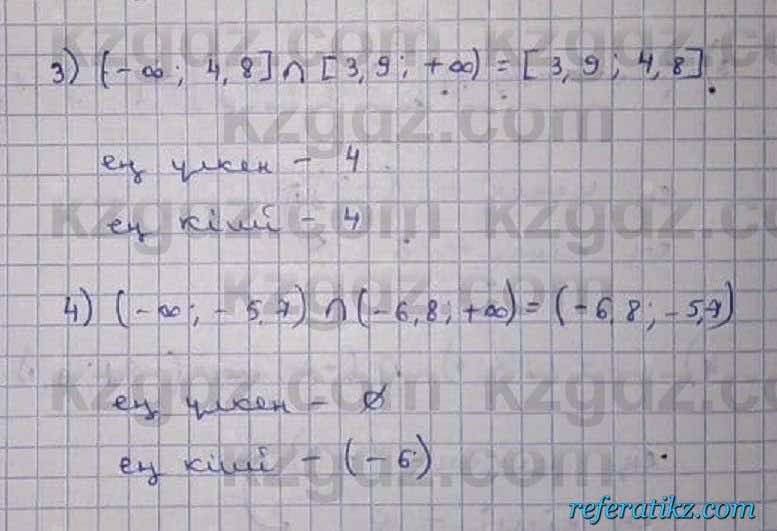 3) (-∞; 4,8] ∩ [3,9; +∞) = [3,9; 4,8].
kzgdz.com
ең үлкен - 4
ең кіші - 4
kzgdz.com kzgdz.com
4) (-∞; -5,7) ∩ (-6,8; +∞) = (-6,8; -5,7)
kzgdz.com
ең үлкен - ∅
ең кіші - (-6)
referatikz.com